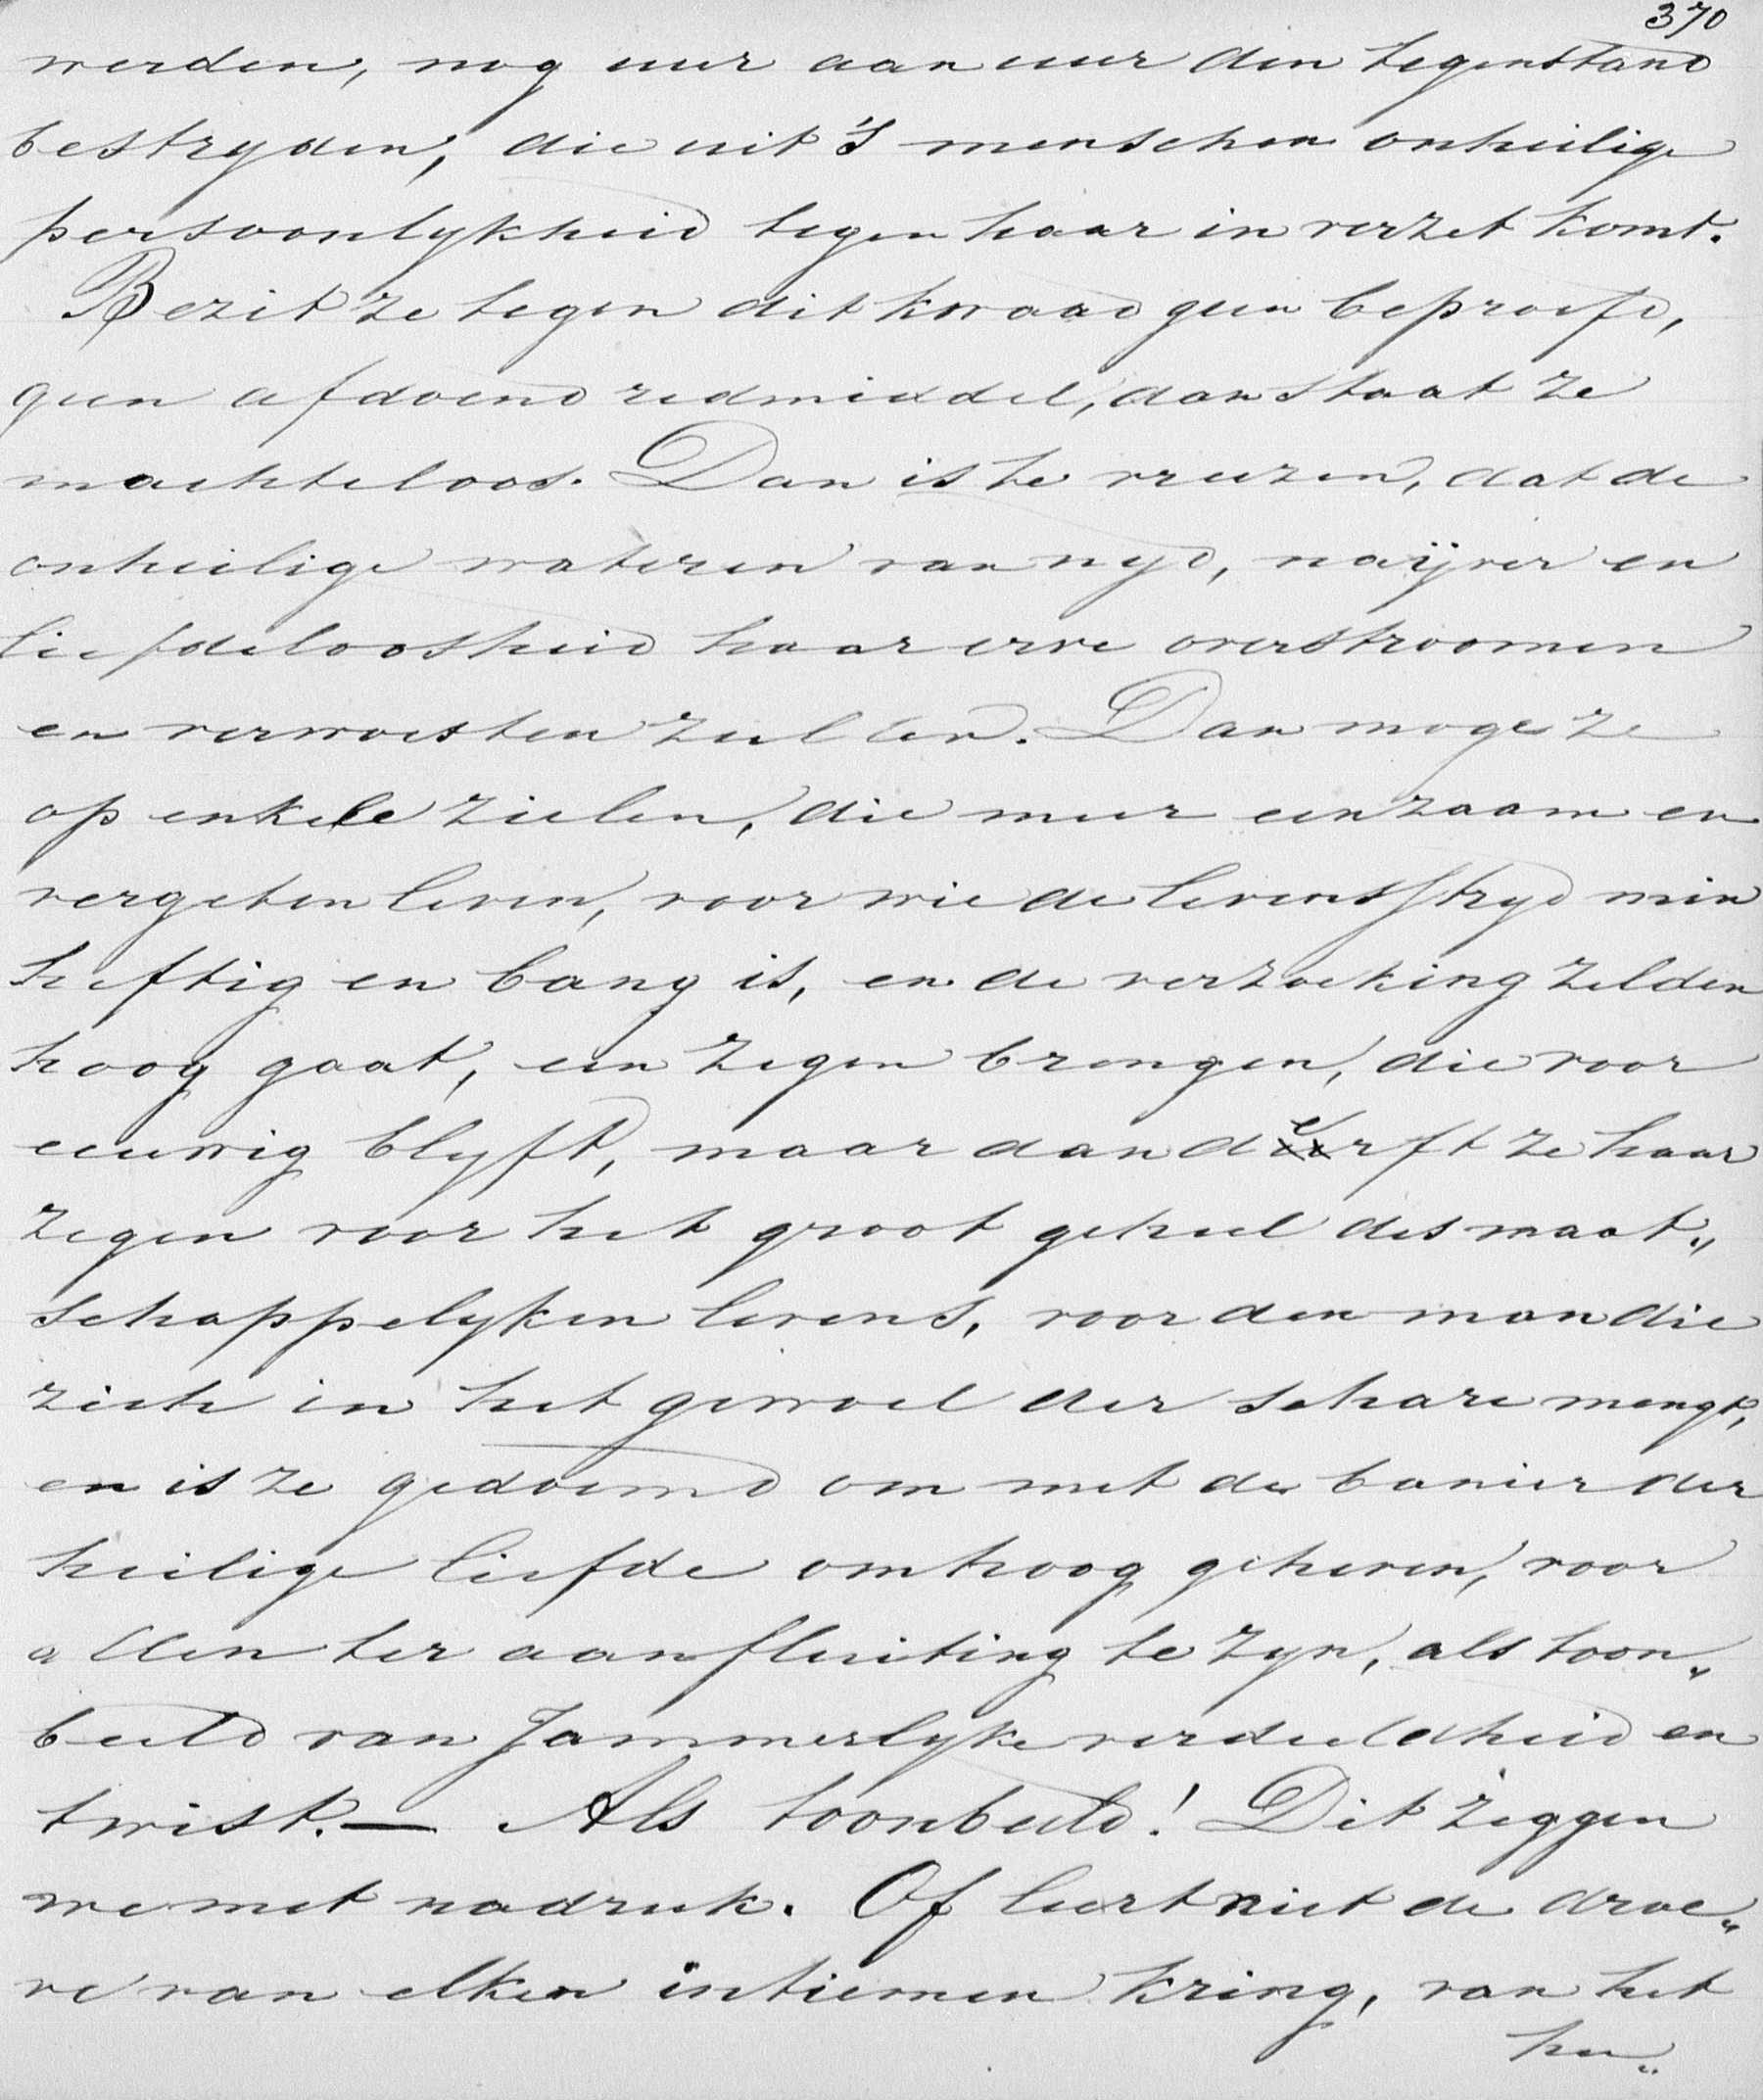 370
werden, nog uur aan uur den tegenstand
bestryden, die uit 's menschen onheilige
persoonlykheid tegen haar in verzet komt.
Bezit ze tegen dit kwaad geen beproefd,
geen afdoend redmiddel, dan staat ze
machteloos. Dan is te vreezen, dat de
onheilige wateren van nyd, naijver en
liefdeloosheid haar erve overstroomen
en verwoesten zullen. Dan moge ze
op enkele zielen, die meer eenzaam en
vergeten leven, voor wie de levensstryd min
heftig en bang is, en de verzoeking zelden
hoog gaat, een zegen brengen, die voor
eeuwig blyft, maar dan derft ze haar
zegen voor het groot geheel des maat„
schappelyken levens, voor den man die
zich in het gewoel der schare mengt,
en is ze gedoemd om met de banier der
heilige liefde omhoog geheven, voor
allen ter aanfluiting te zyn, als toon„
beeld van Jammerlyke verdeeldheid en
twist. — Als toonbeeld! Dit zeggen
we met nadruk. Of leert niet de droe„
ve van elken intiemen kring, van het
hu„